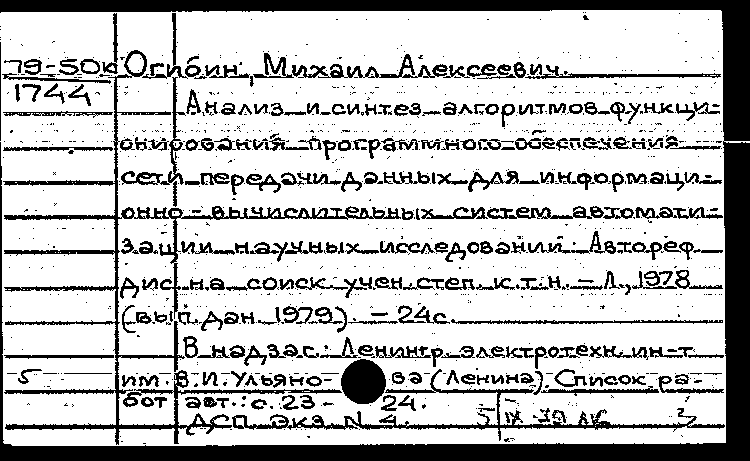 79-50к Огибин, Михаил Алексеевич.
1744
Анализ и синтез алгоритмов функци-
онирования программного обеспечения
сети передачи данных для информаци-
онно-вычислительных систем автомати-
зации научных исследований: Автореф.
дис. на соиск. учен. степ. к.т.н. - Л., 1978
(вып. дан. 1979). - 24с.
В надзаг.: Ленингр. электротехн. ин-т
5 им. В.И. Ульяно-ва (Ленина). Список ра-
бот авт.: с. 23-24.
ДСП. Экз. N 4. 5 IX-79 3